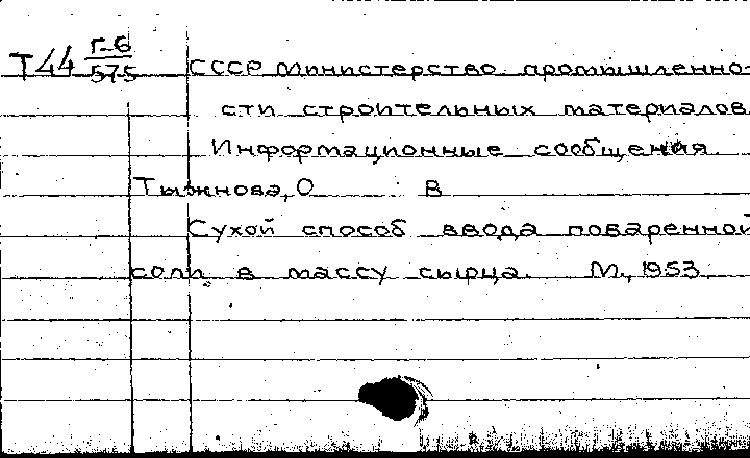 Т44 Г-6/575 СССР Министерство промышленно-
сти строительных материалов
Информационные сообщения.
Тыжнова, О В
Сухой способ ввода поваренной
соли в массу сырца. М., 1953